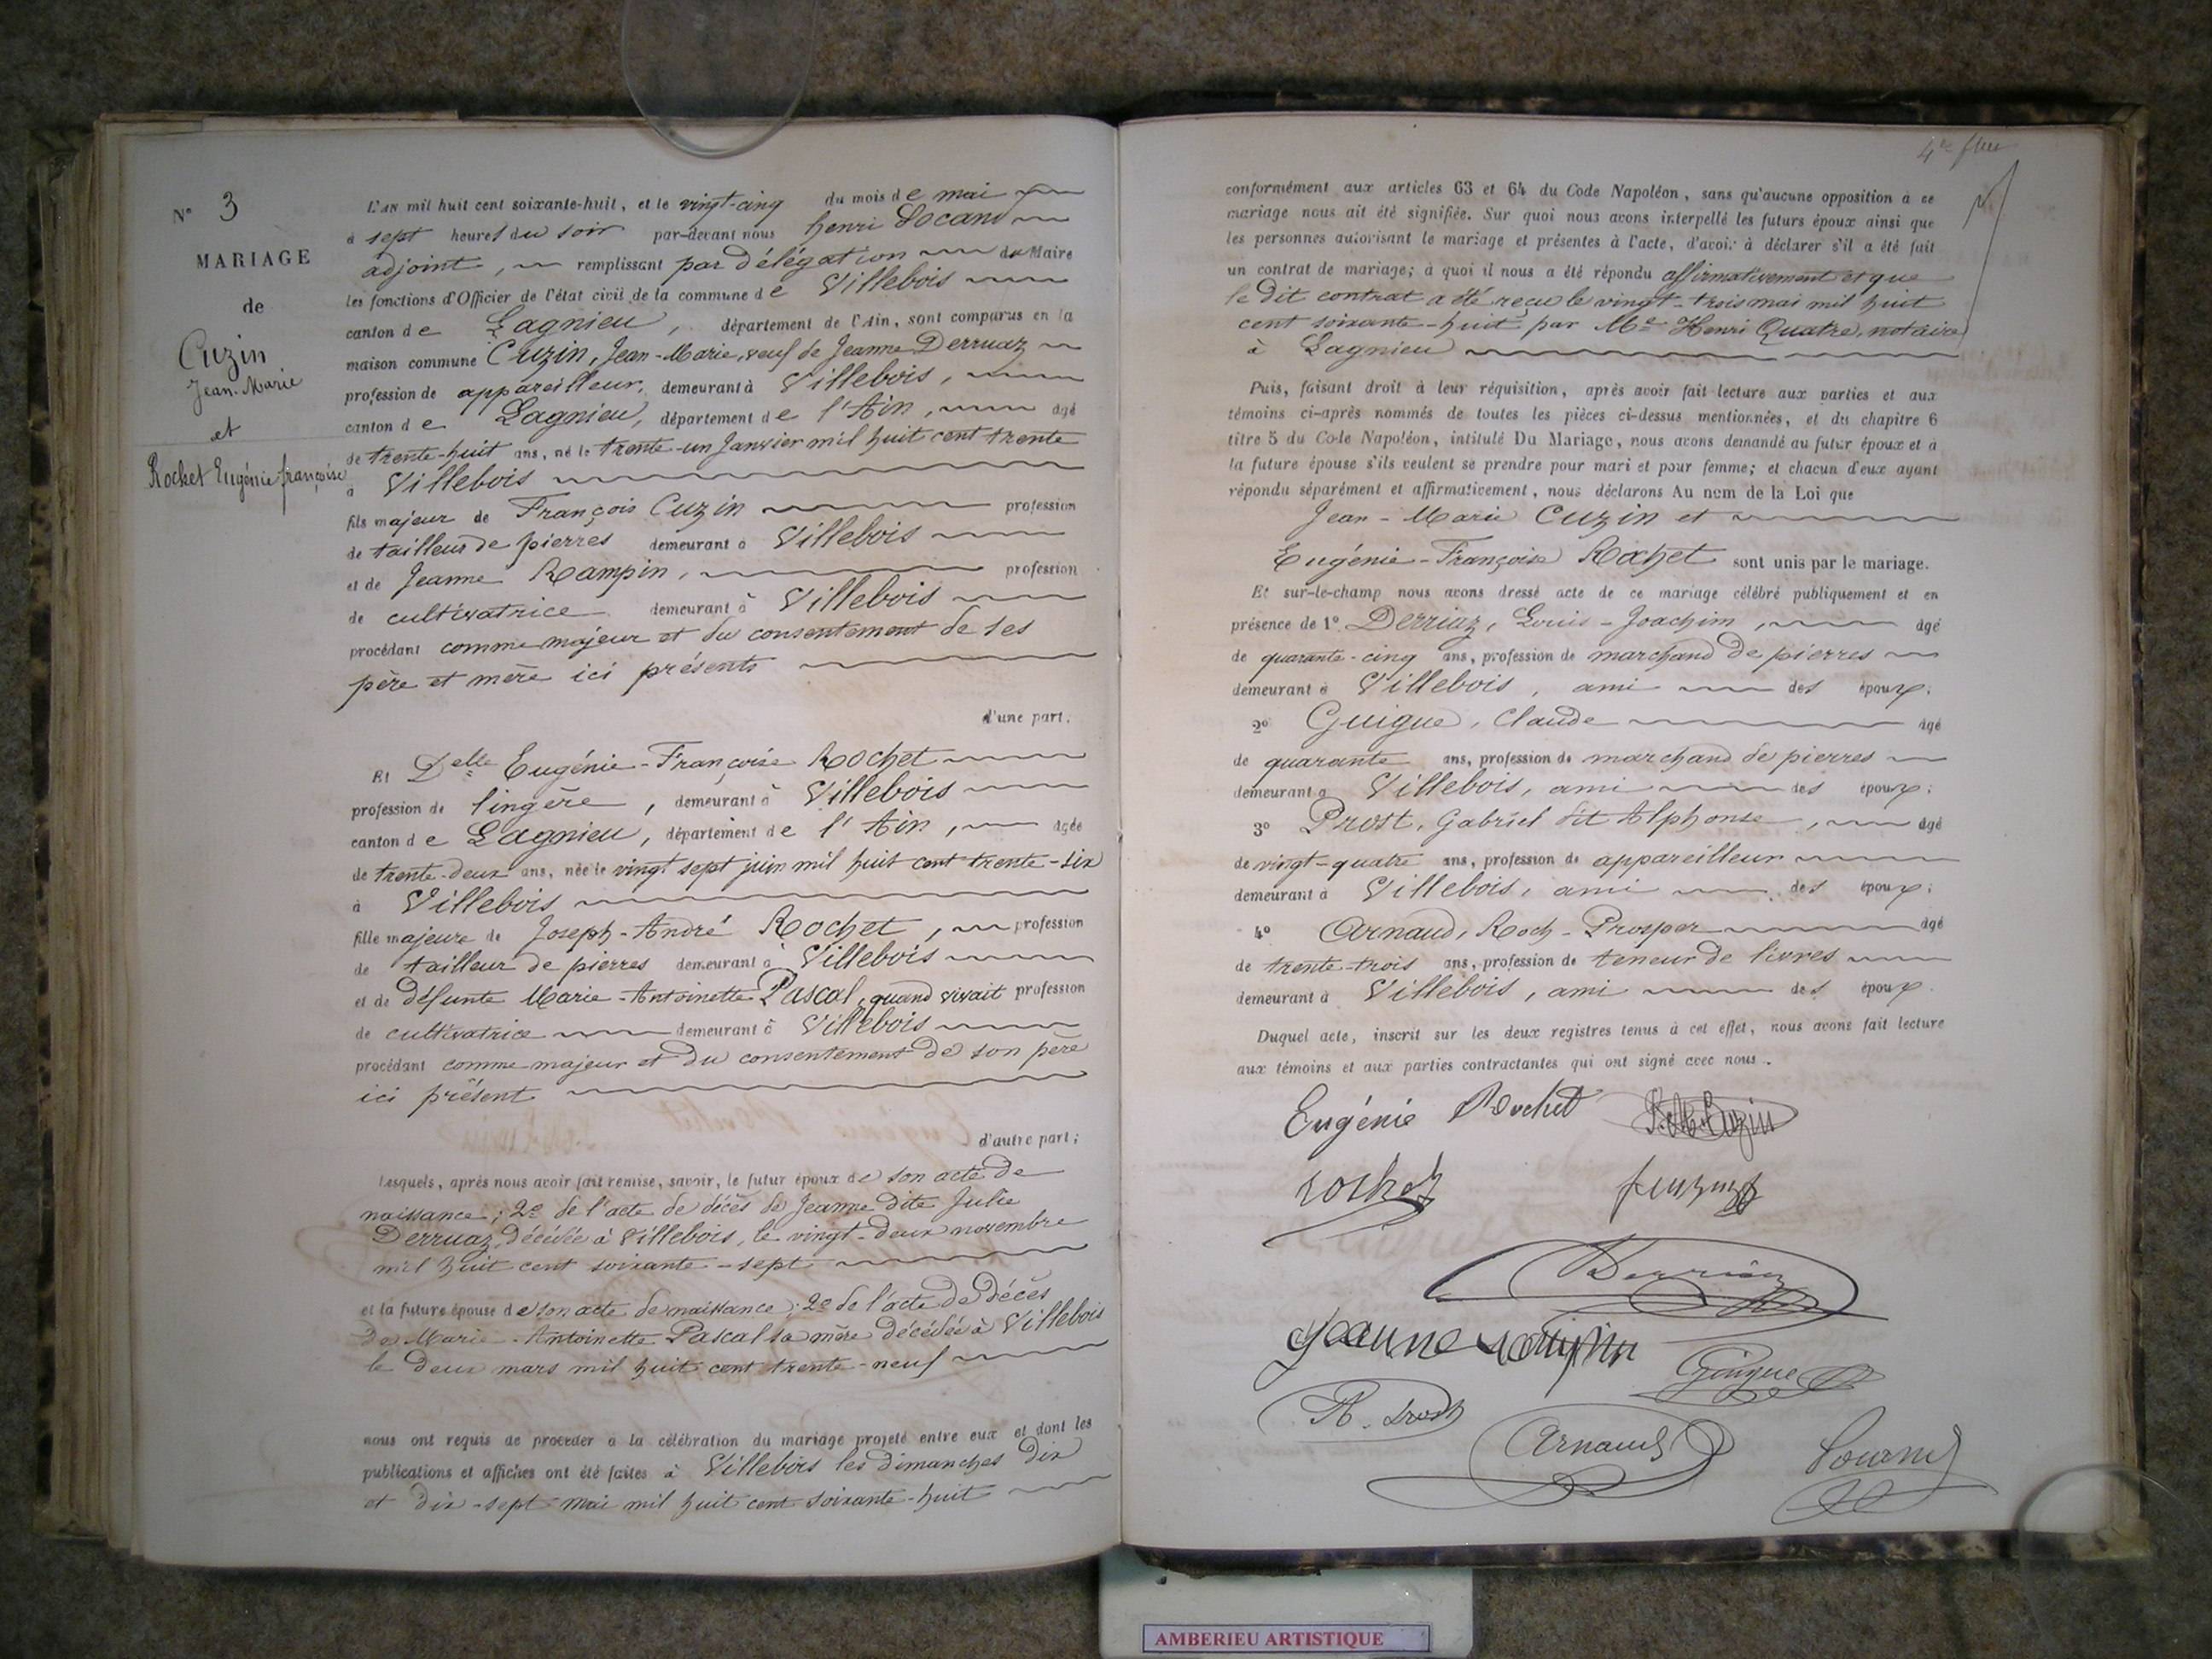 N° 3
MARIAGE
de
Cuzin
Jean-Marie
et
Rochet Eugénie françoise
L'AN mil huit cent soixante-huit, et le vingt-cinq du mois de mai
à sept heures du soir par-devant nous henri Locard
adjoint, remplissant par délégation du Maire
les fonctions d'Officier de l'état civil de la commune de Villebois
canton de Lagnieu, département de l'Ain, sont comparus en la
maison commune Cuzin, Jean-Marie, veuf de Jeanne Derruaz
profession de appareilleur, demeurant à Villebois,
canton de Lagnieu, département de l'Ain, âgé
de trente-huit ans, né le trente-un Janvier mil huit cent trente
à Villebois
fils majeur de François Cuzin profession
de tailleur de pierres demeurant à Villebois
et de Jeanne Rampin, profession
de cultivatrice demeurant à Villebois
procédant comme majeur et du consentement de ses
père et mère ici présents
d'une part.
Et Delle Eugénie-Françoise Rochet
profession de lingère, demeurant à Villebois
canton de Lagnieu, département de l'Ain, âgée
de trente-deux ans, née le vingt sept juin mil huit cent trente-six
à Villebois
fille majeure de Joseph-André Rochet, profession
de tailleur de pierres demeurant à Villebois
et de défunte Marie-Antoinette Pascal, quand vivait profession
de cultivatrice demeurant à Villebois
procédant comme majeur et du consentement de son père
ici présent
d'autre part;
Lesquels, après nous avoir fait remise, savoir, le futur époux de son acte de
naissance; 2° de l'acte de décès de Jeanne dite Julie
Derruaz, décédée à Villebois, le vingt-deux novembre
mil huit cent soixante-sept
et la future épouse de son acte de naissance; 2° de l'acte de décès
de Marie-Antoinette Pascal sa mère décédée à Villebois
le deux mars mil huit cent trente-neuf
nous ont requis de procéder à la célébration du mariage projeté entre eux et dont les
publications et affiches ont été faites à Villebois les dimanches dix
et dix-sept mai mil huit cent soixante-huit
conformément aux articles 63 et 64 du Code Napoléon, sans qu'aucune opposition à ce
mariage nous ait été signifiée. Sur quoi nous avons interpellé les futurs époux ainsi que
les personnes autorisant le mariage et présentes à l'acte, d'avoir à déclarer s'il a été fait
un contrat de mariage; à quoi il nous a été répondu affirmativement et que
le dit contrat a été reçu le vingt-trois mai mil huit
cent soixante-huit par Me Henri Quatre, notaire
à Lagnieu
Puis, faisant droit à leur réquisition, après avoir fait lecture aux parties et aux
témoins ci-après nommés de toutes les pièces ci-dessus mentionnées, et du chapitre 6
titre 5 du Code Napoléon, intitulé Du Mariage, nous avons demandé au futur époux et à
la future épouse s'ils veulent se prendre pour mari et pour femme; et chacun d'eux ayant
répondu séparément et affirmativement, nous déclarons Au nom de la Loi que
Jean-Marie Cuzin et
Eugénie-Françoise Rochet sont unis par le mariage.
Et sur-le-champ nous avons dressé acte de ce mariage célébré publiquement et en
présence de 1° Derriaz, Louis-Joachim, âgé
de quarante-cinq ans, profession de marchand de pierres
demeurant à Villebois, ami des époux;
2° Guigue, Claude âgé
de quarante ans, profession de marchand de pierres
demeurant à Villebois, ami des époux;
3° Prost, Gabriel dit Alphonse, âgé
de vingt-quatre ans, profession de appareilleur
demeurant à Villebois, ami des époux;
4° Arnaud, Roch-Prosper âgé
de trente-trois ans, profession de teneur de livres
demeurant à Villebois, ami des époux.
Duquel acte, inscrit sur les deux registres tenus à cet effet, nous avons fait lecture
aux témoins et aux parties contractantes qui ont signé avec nous.
Eugénie Rochet J.M. Cuzin
rochet
Derriaz
jeanne rampin
Guigue
A. Prost
Arnaud
Locard
AMBERIEU ARTISTIQUE